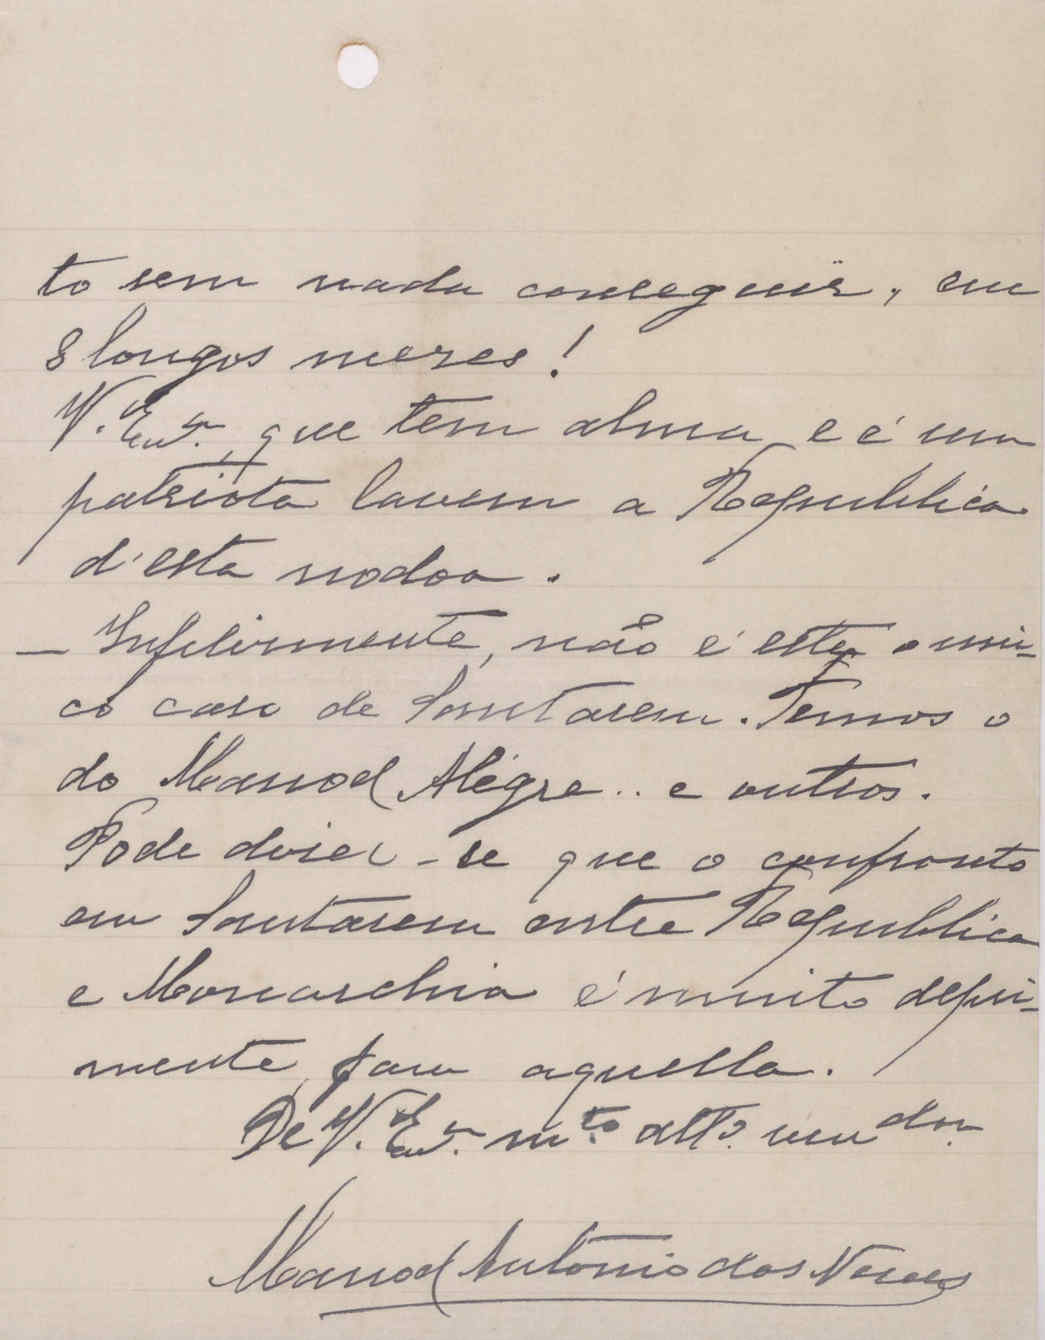 to sem nada conseguir, em
8 longos mezes!
V. Ex.ª, que tem alma e é um
patriota lavem a Republica
d'esta nodoa.
— Infelizmente, não é este o uni-
co caso de Santarem. Temos o
do Manoel Alegre.. e outros.
Pode dizer-se que o confronto
em Santarem entre Republica
e Monarchia é muito depri-
mente para aquella.
De V. Ex.ª m.to att.º ven.dor
Manoel António das Neves